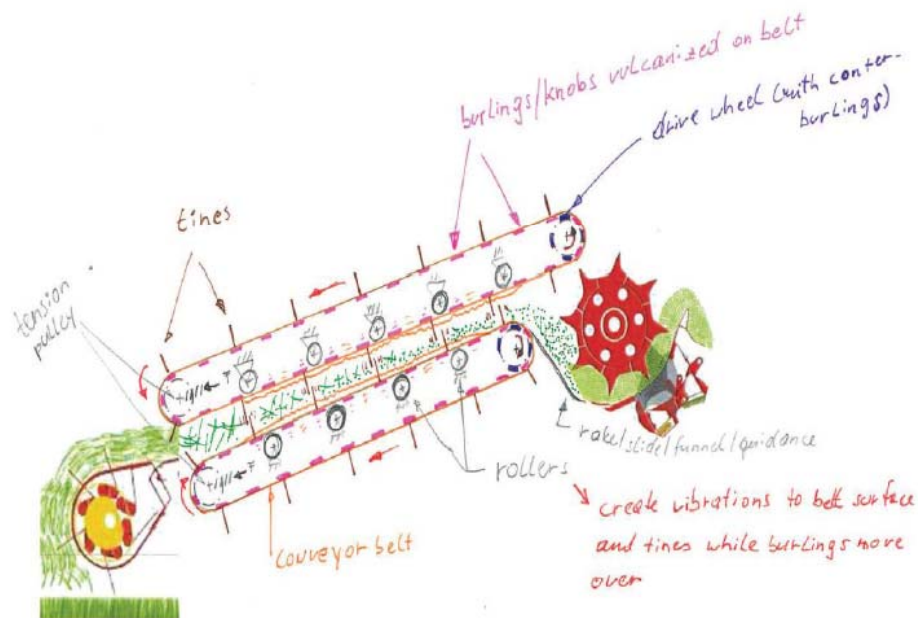 burlings/knobs vulcanized on belt
drive wheel (with conter-
burlings)
tines
tension
pulley
rake/slide/funnel/guidance
rollers
create vibrations to belt surface
and tines while burlings move
over
conveyor belt